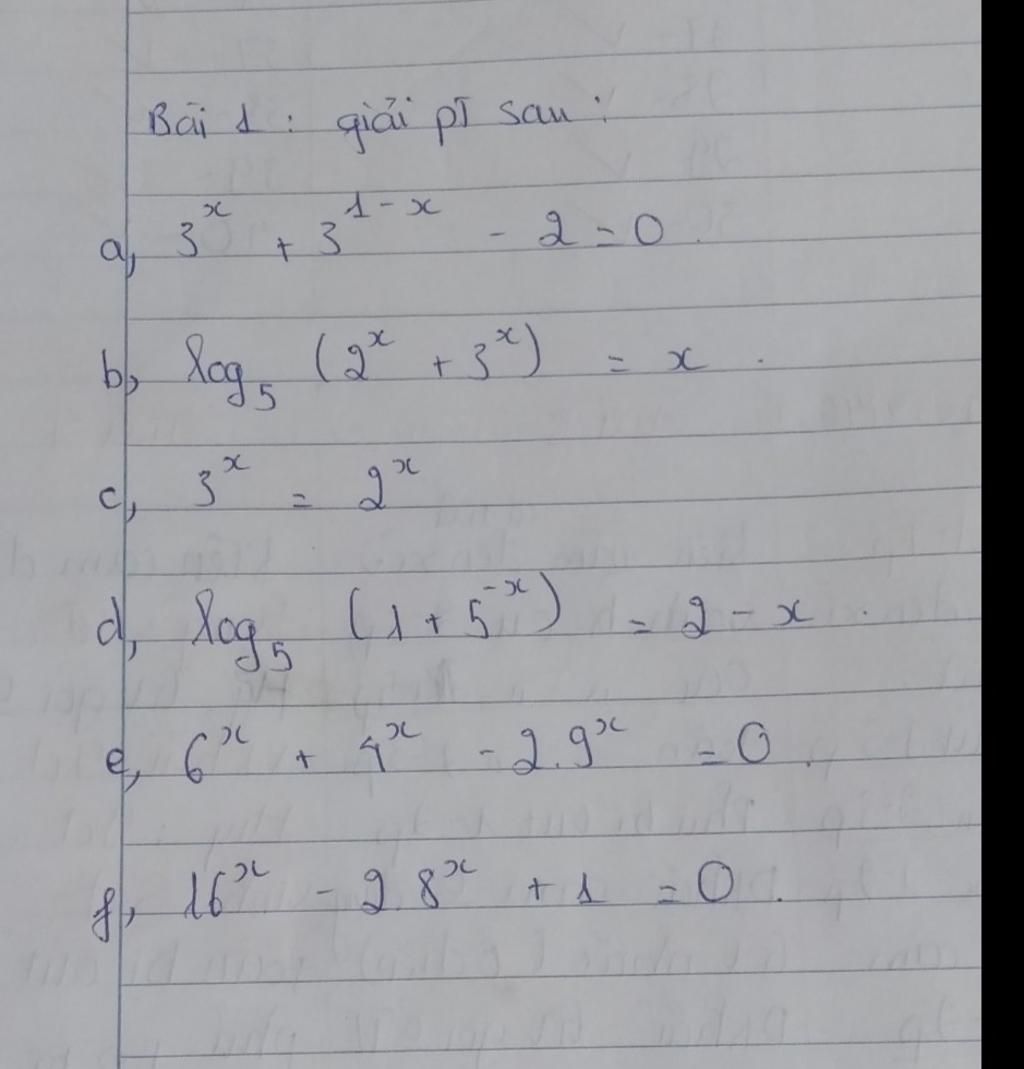 Bài 1 : giải pT sau :
a, 3^x + 3^{1-x} - 2 = 0.
b, log_5 (2^x + 3^x) = x .
c, 3^x = 2^x
d, log_5 (1 + 5^{-x}) = 2 - x .
e, 6^x + 4^x - 2.9^x = 0 .
f, 16^x - 2.8^x + 1 = 0 .